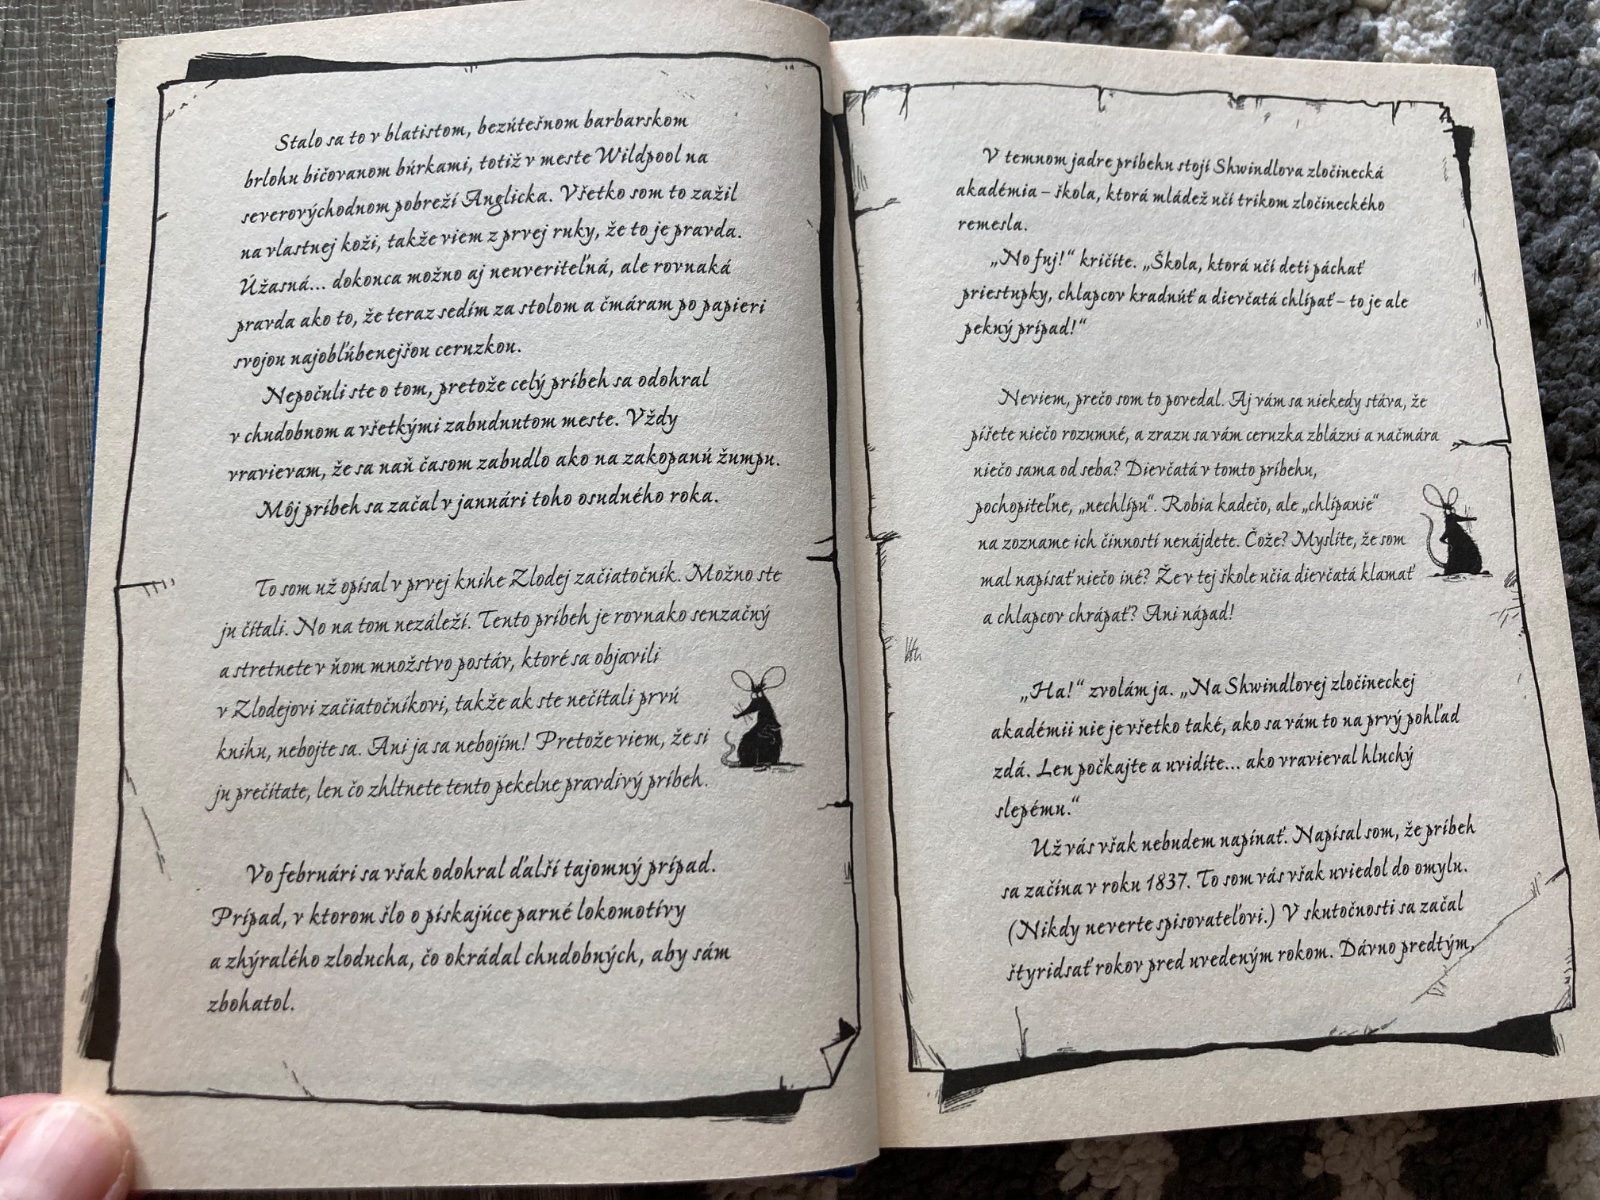 Stalo sa to v blatistom, bezútešnom barbarskom
brlohu bičovanom búrkami, totiž v meste Wildpool na
severovýchodnom pobreží Anglicka. Všetko som to zažil
na vlastnej koži, takže viem z prvej ruky, že to je pravda.
Úžasná... dokonca možno aj neuveriteľná, ale rovnaká
pravda ako to, že teraz sedím za stolom a čmáram po papieri
svojou najobľúbenejšou ceruzkou.
Nepočuli ste o tom, pretože celý príbeh sa odohral
v chudobnom a všetkými zabudnutom meste. Vždy
vravievam, že sa naň časom zabudlo ako na zakopanú žumpu.
Môj príbeh sa začal v januári toho osudného roka.
To som už opísal v prvej knihe Zlodej začiatočník. Možno ste
ju čítali. No na tom nezáleží. Tento príbeh je rovnako senzačný
a stretnete v ňom množstvo postáv, ktoré sa objavili
v Zlodejovi začiatočníkovi, takže ak ste nečítali prvú
knihu, nebojte sa. Ani ja sa nebojím! Pretože viem, že si
ju prečítate, len čo zhltnete tento pekelne pravdivý príbeh.
Vo februári sa však odohral ďalší tajomný prípad.
Prípad, v ktorom šlo o pískajúce parné lokomotívy
a zhýralého zloducha, čo okrádal chudobných, aby sám
zbohatol.
V temnom jadre príbehu stojí Shwindlova zločinecká
akadémia – škola, ktorá mládež učí trikom zločineckého
remesla.
„No fuj!“ kričíte. „Škola, ktorá učí deti páchať
priestupky, chlapcov kradnúť a dievčatá chlípať – to je ale
pekný prípad!“
Neviem, prečo som to povedal. Aj vám sa niekedy stáva, že
píšete niečo rozumné, a zrazu sa vám ceruzka zblázni a načmára
niečo sama od seba? Dievčatá v tomto príbehu,
pochopiteľne, „nechlípu“. Robia kadečo, ale „chlípanie“
na zozname ich činností nenájdete. Čože? Myslíte, že som
mal napísať niečo iné? Že v tej škole učia dievčatá klamať
a chlapcov chrápať? Ani nápad!
„Ha!“ zvolám ja. „Na Shwindlovej zločineckej
akadémii nie je všetko také, ako sa vám to na prvý pohľad
zdá. Len počkajte a uvidíte... ako vravieval hluchý
slepému.“
Už vás však nebudem napínať. Napísal som, že príbeh
sa začína v roku 1837. To som vás však uviedol do omylu.
(Nikdy neverte spisovateľovi.) V skutočnosti sa začal
štyridsať rokov pred uvedeným rokom. Dávno predtým,